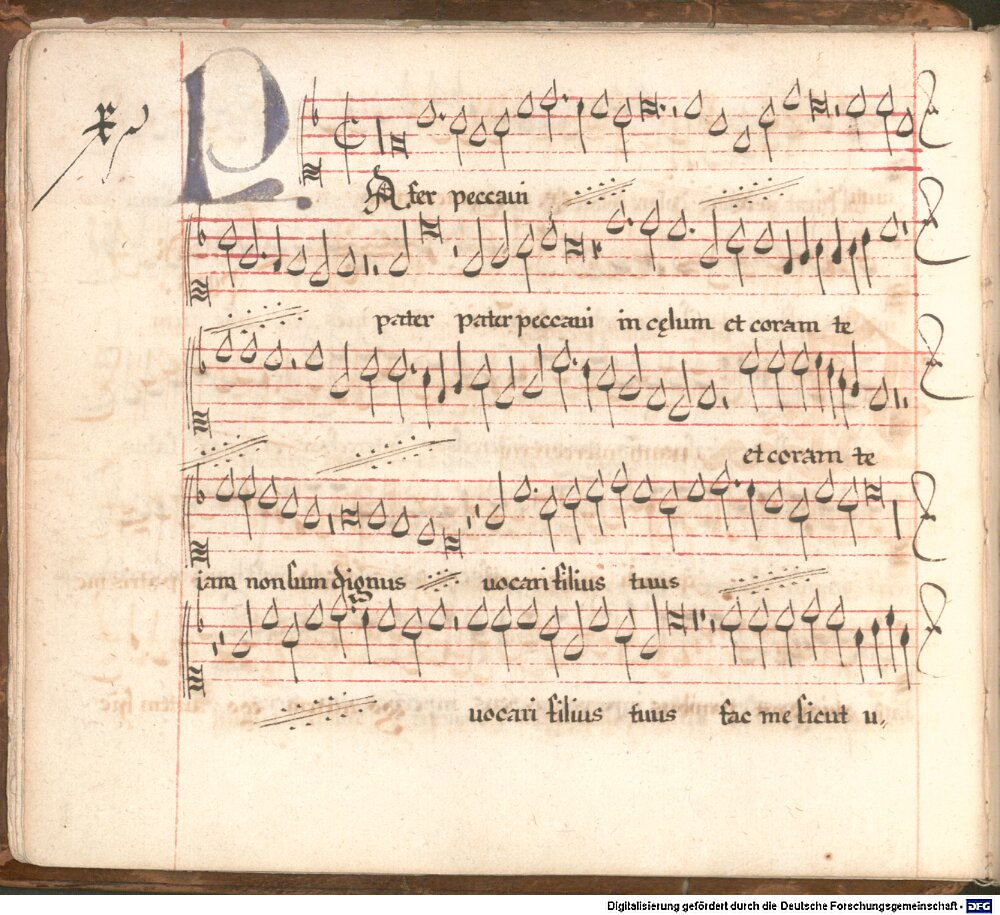 x
PAter peccaui
pater pater peccaui in cęlum et coram te
et coram te
iam non sum dignus uocari filius tuus
uocari filius tuus fac me sicut u,
Digitalisierung gefördert durch die Deutsche Forschungsgemeinschaft - DFG